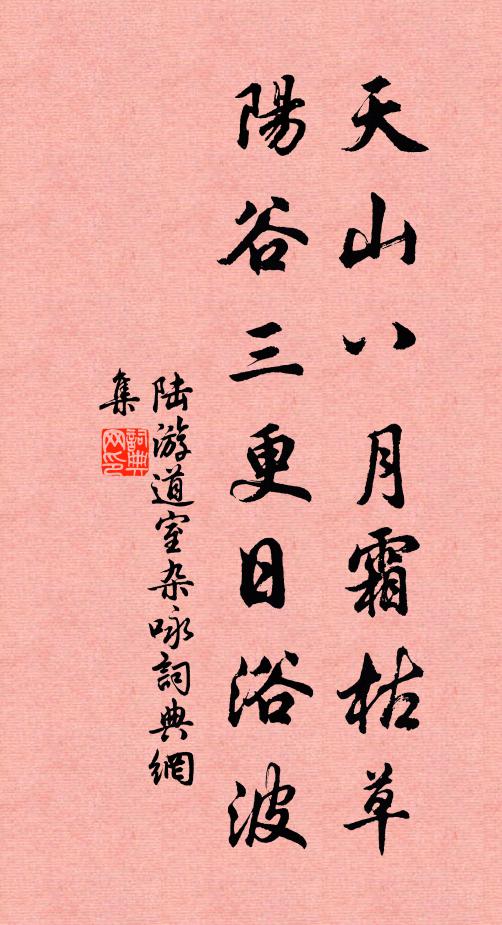 天山八月霜枯草
陽谷三更日浴波
陆游道室杂咏詞典網
集
詞典网印